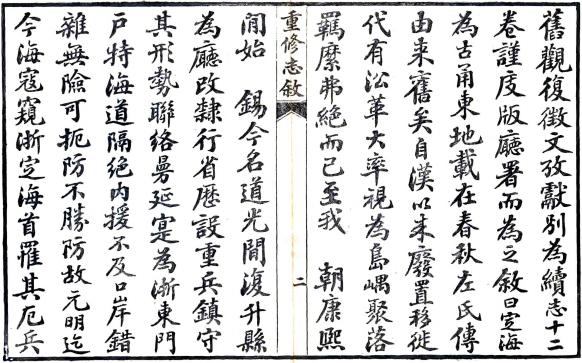 舊觀復徵文攷獻别為續志十二
卷謹庋版廳署而為之敘曰定海
為古甬東地載在春秋左氏傳
由来舊矣自漢以来廢置移徙
代有沿革大率視為島嶼聚落
羈縻弗絶而已至我　朝康熙
重修志敘
二
間始　錫今名道光間復升縣
為廳改隸行省歷設重兵鎮守
其形勢聯絡曼延寔為浙東門
戶特海道隔絶内援不及口岸錯
雜無險可扼防不勝防故元明迄
今海寇窺浙定海首罹其厄兵